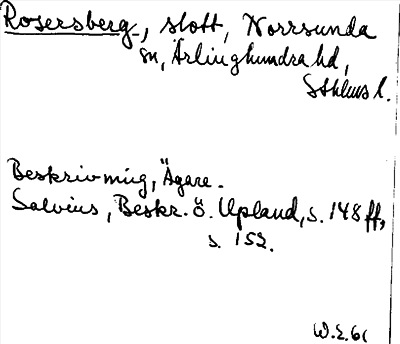 Rosersberg, slott, Norrsunda
sn, Ärlinghundra hd,
Sthlms l.
Beskrivning, Ägare.
Salvius, Beskr. ö. Upland, s. 148 ff,
s. 152.
W.E. 61